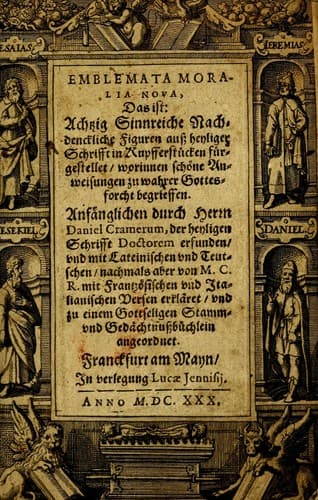 ESAIAS.
IEREMIAS.
EMBLEMATA MORA-
LIA NOVA,
Das ist:
Achtzig Sinnreiche Nach-
denckliche Figuren auß heyliger
Schrifft in Kupfferstücken für-
gestellet / worinnen schöne An-
weisungen zu wahrer Gottes-
forcht begrieffen.
Anfänglichen durch Herrn
Daniel Cramerum, der heyligen
Schrifft Doctorem erfunden /
vnd mit Lateinischen vnd Teut-
schen / nachmals aber von M. C.
R. mit Frantzösischen vnd Ita-
lianischen Versen erkläret / vnd
zu einem Gottseligen Stamm-
vnd Gedächtnußbüchlein
angeordnet.
EZEKIEL
DANIEL
Franckfurt am Mayn /
In verlegung Lucæ Jennisij.
ANNO M.DC. XXX.